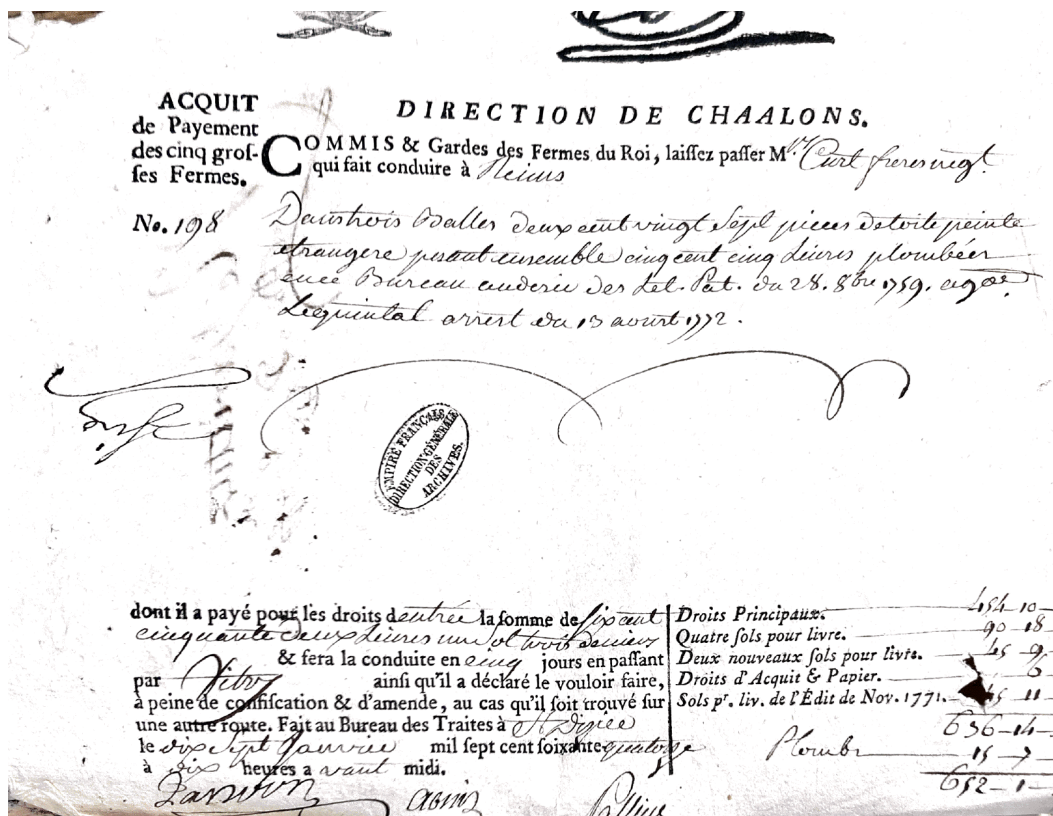 ACQUIT
de Payement
des cinq gros-
ses Fermes.
DIRECTION DE CHAALONS.
COMMIS & Gardes des Fermes du Roi, laissez passer Mrs. freres negt.
qui fait conduire à Reims
No. 198
Dans trois Balles deux cent vingt Sept pieces de toile peinte
etrangere pesant ensemble cinq cent cinq Livres plombées
en ce Bureau au desir des Let. Pat. du 28. 8bre 1759. a 90#
Le quintal arrest du 13 aoust 1772.
EMPIRE FRANÇAIS
DIRECTION GÉNÉRALE
DES
ARCHIVES.
dont il a payé pour les droits d'entrée la somme de six cent
cinquante deux Livres un sol trois deniers
& fera la conduite en cinq jours en passant
par Vitry ainsi qu'il a déclaré le vouloir faire,
à peine de confiscation & d'amende, au cas qu'il soit trouvé sur
une autre route. Fait au Bureau des Traites à St Dizier
le dix Sept Janvier mil sept cent soixante-quatorze
à dix heures avant midi.
Droits Principaux. 454-10-
Quatre sols pour livre. 90-18
Deux nouveaux sols pour livre. 45-9
Droits d'Acquit & Papier.
Sols pr. liv. de l'Édit de Nov. 1771. 45 11
636-14-
Plombs 15-7-
652-1-